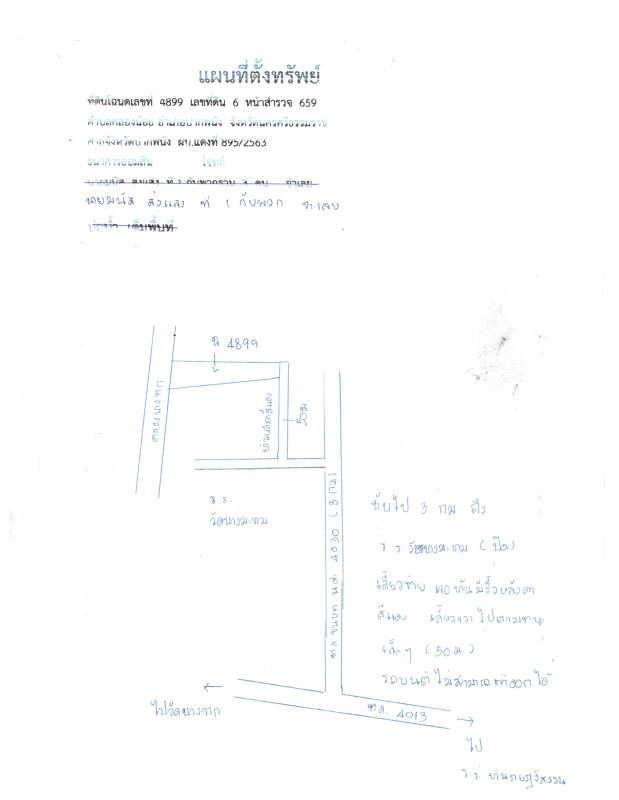 แผนที่ตั้งทรัพย์
ที่ดินโฉนดเลขที่ 4899 เลขที่ดิน 6 หน้าสำรวจ 659
ตำบลคลองน้อย อำเภอปากพนัง จังหวัดนครศรีธรรมราช
ศาลจังหวัดปากพนัง ผบ.แดงที่ 895/2563
ธนาคารออมสิน โจทก์
นายมนัส สงแสง ที่ 1 กับพวกรวม คน จำเลย
นายมนัส ส่งแสง ที่ 1 กับพวก จำเลย
เต็มพื้นที่
น 4899
คลองบางจาก
บ้านหลังคาสีแดง
50ม.
ร.ร.
ทล.ชนบท นศ. 4030 (3 กม)
ขับไป 3 กม ถึง
ร.ร. (ปิด)
เลี้ยวซ้าย บ้านมีรั้วหลังคา
สีแดง เลี้ยวขวาไปตามทาง
เล็กๆ (50ม.)
รถยนต์ไม่สามารถเข้าออกได้
ไปวัดบางจาก
ทล. 4013
ไป
ร.ร